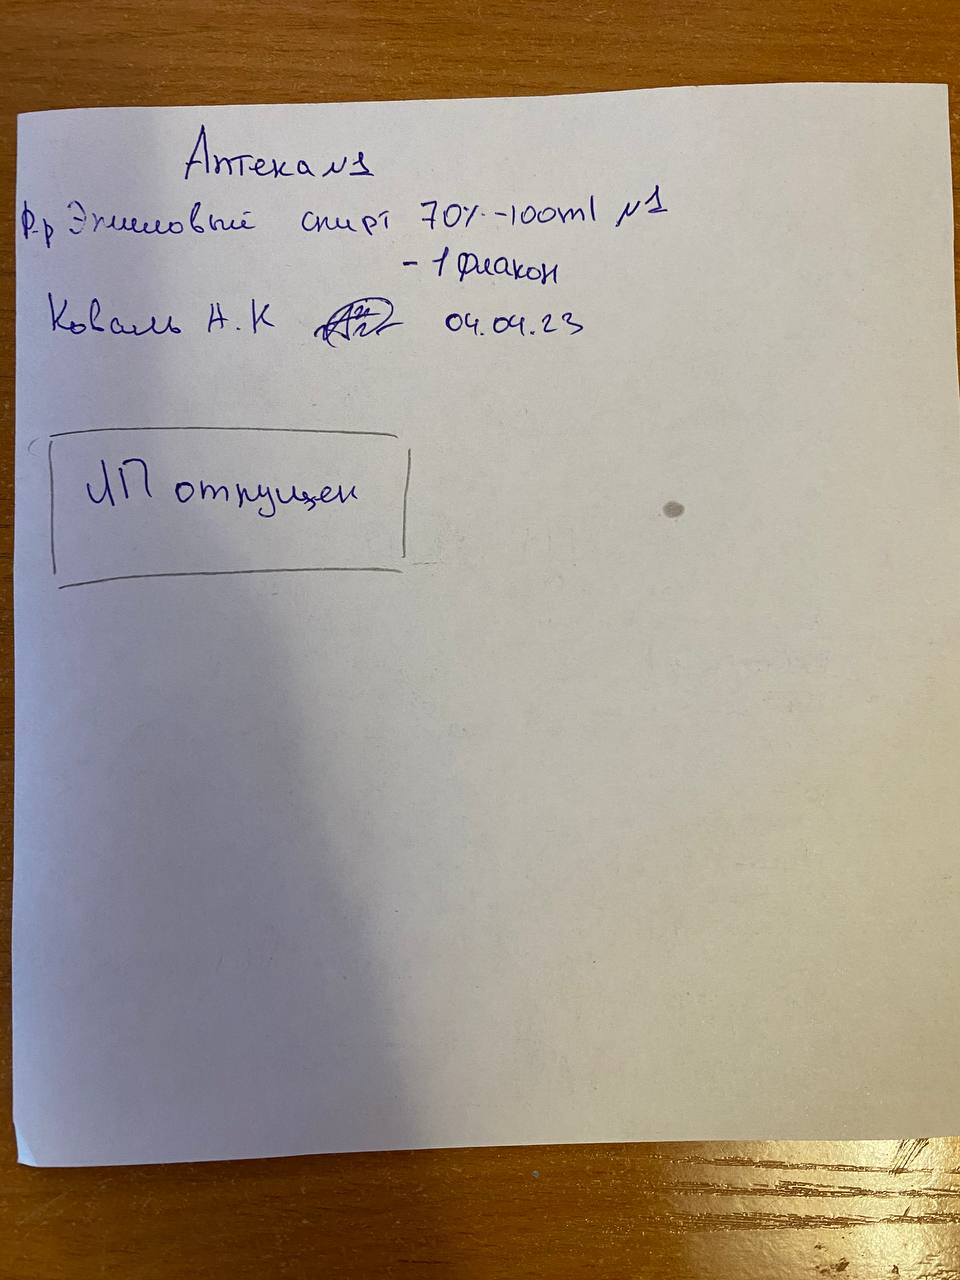 Аптека №1
Р-р Этиловый спирт 70% - 100ml №1
- 1 флакон
Коваль Н.К 04.04.23
ЛП отпущен